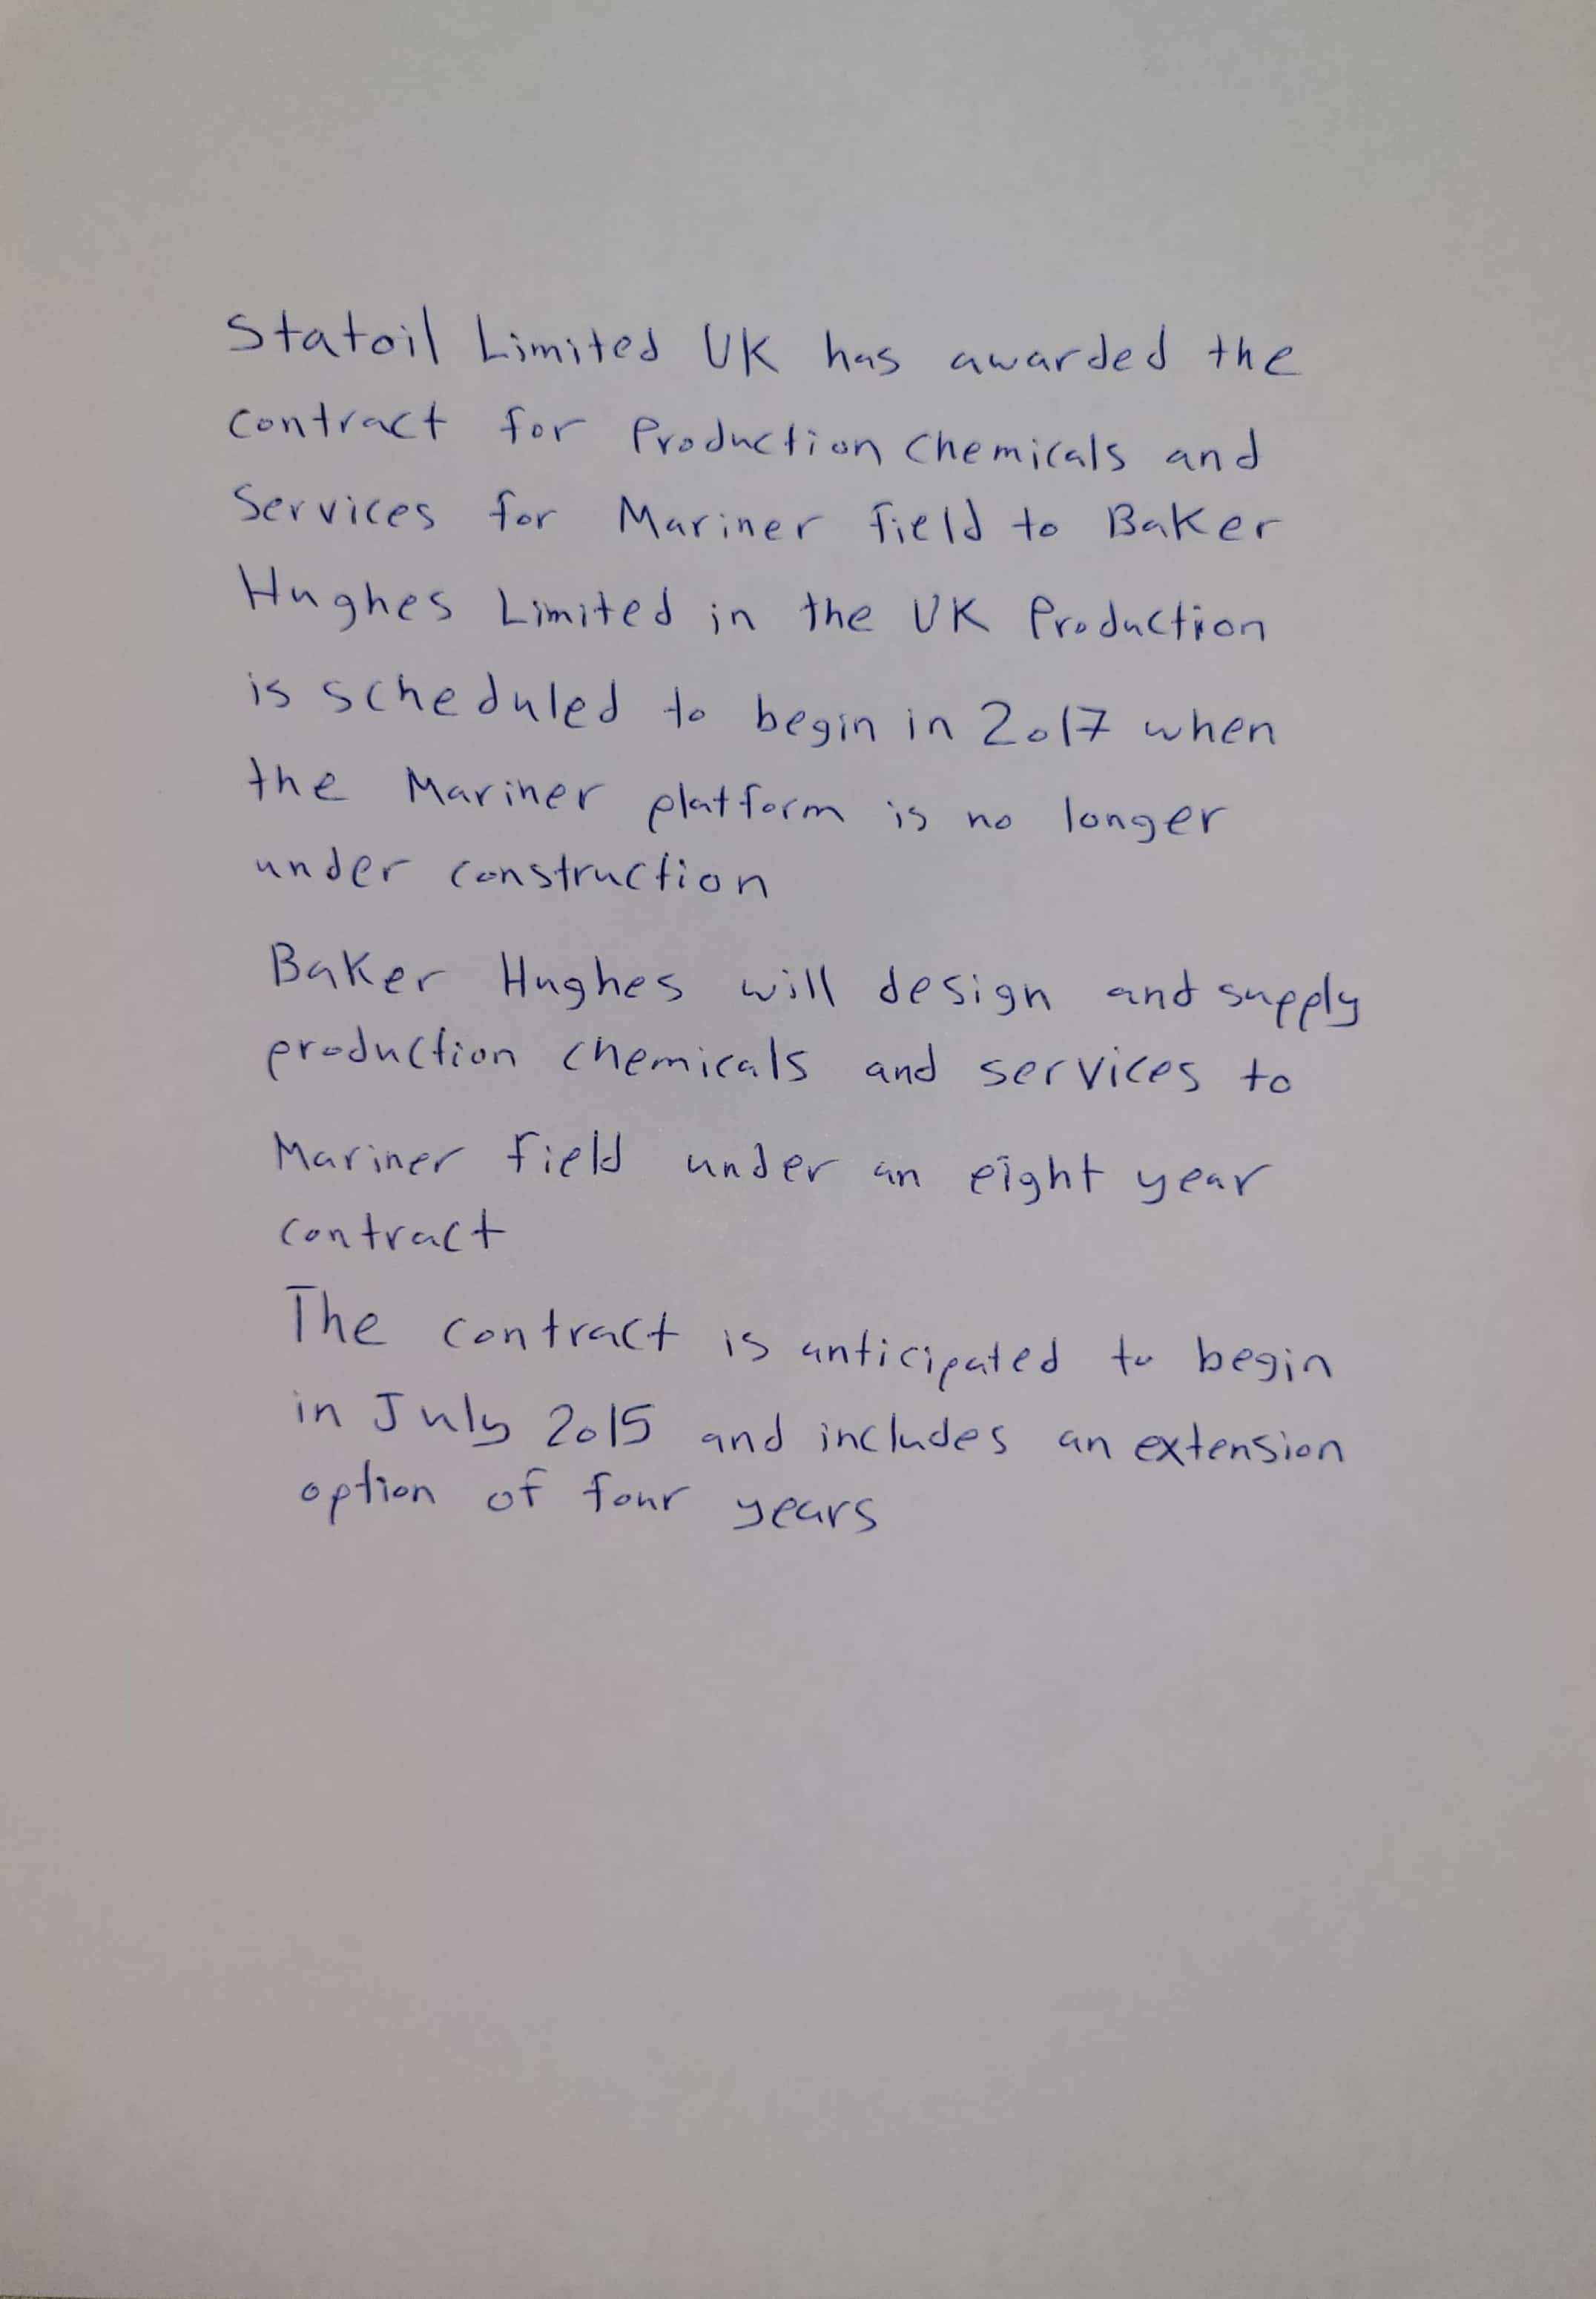 Statoil Limited UK has awarded the
contract for Production Chemicals and
Services for Mariner field to Baker
Hughes Limited in the UK Production
is scheduled to begin in 2017 when
the Mariner platform is no longer
under construction
Baker Hughes will design and supply
production chemicals and services to
Mariner field under an eight year
contract
The contract is anticipated to begin
in July 2015 and includes an extension
option of four years